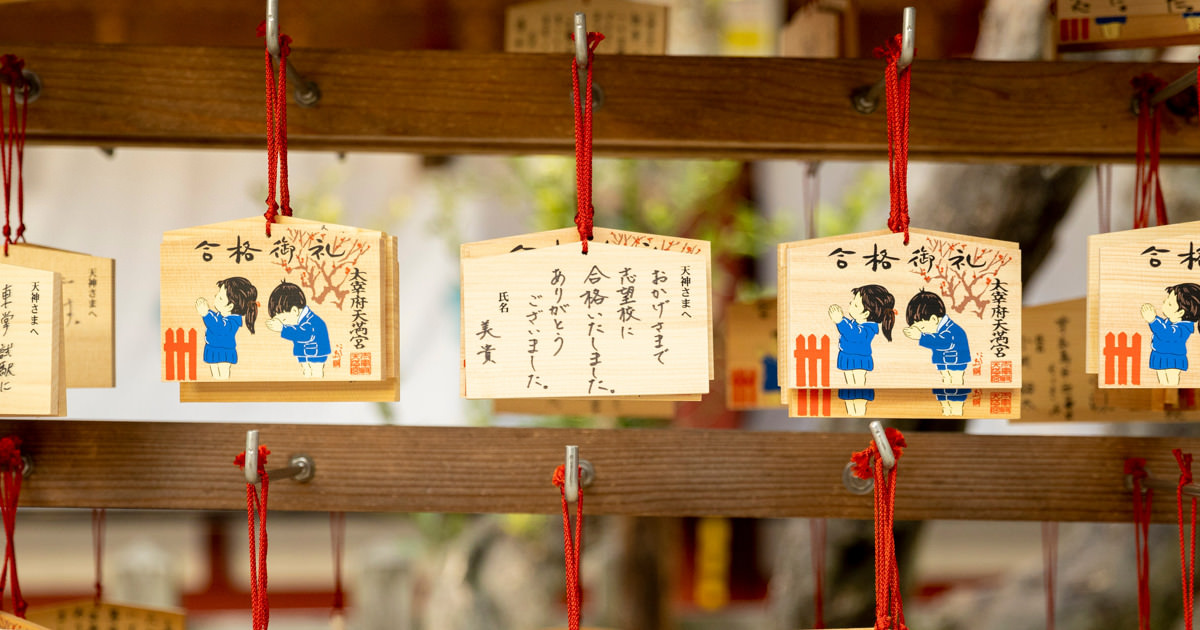 天神さまへ
天神さまへ
合格御礼
太宰府天満宮
天神さまへ
おかげさまで
志望校に
合格いたしました。
ありがとう
ございました。
氏名
美貴
合格御礼
太宰府天満宮
合格